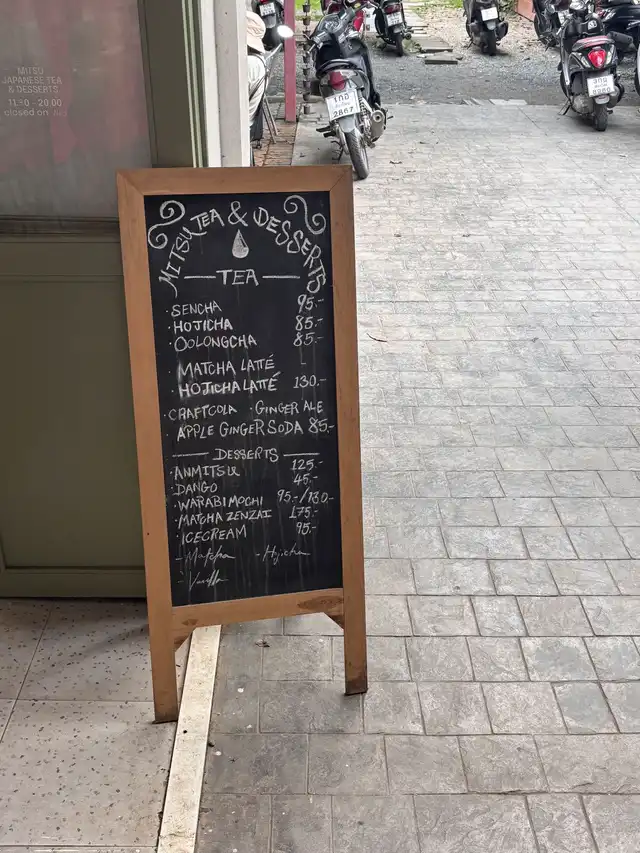 MITSU
JAPANESE TEA
& DESSERTS
11.30 - 20.00
closed on
MITSU TEA & DESSERTS
TEA
· SENCHA 95.-
· HOJICHA 85.-
· OOLONGCHA 85.-
· MATCHA LATTÉ -
· HOJICHA LATTÉ 130.-
· CRAFT COLA · GINGER ALE
· APPLE GINGER SODA 85.-
DESSERTS
· ANMITSU 125.-
· DANGO 45.-
· WARABIMOCHI 95.-/130.-
· MATCHA ZENZAI 175.-
· ICECREAM 95.-
- Matcha - Hojicha
- Vanilla
2667